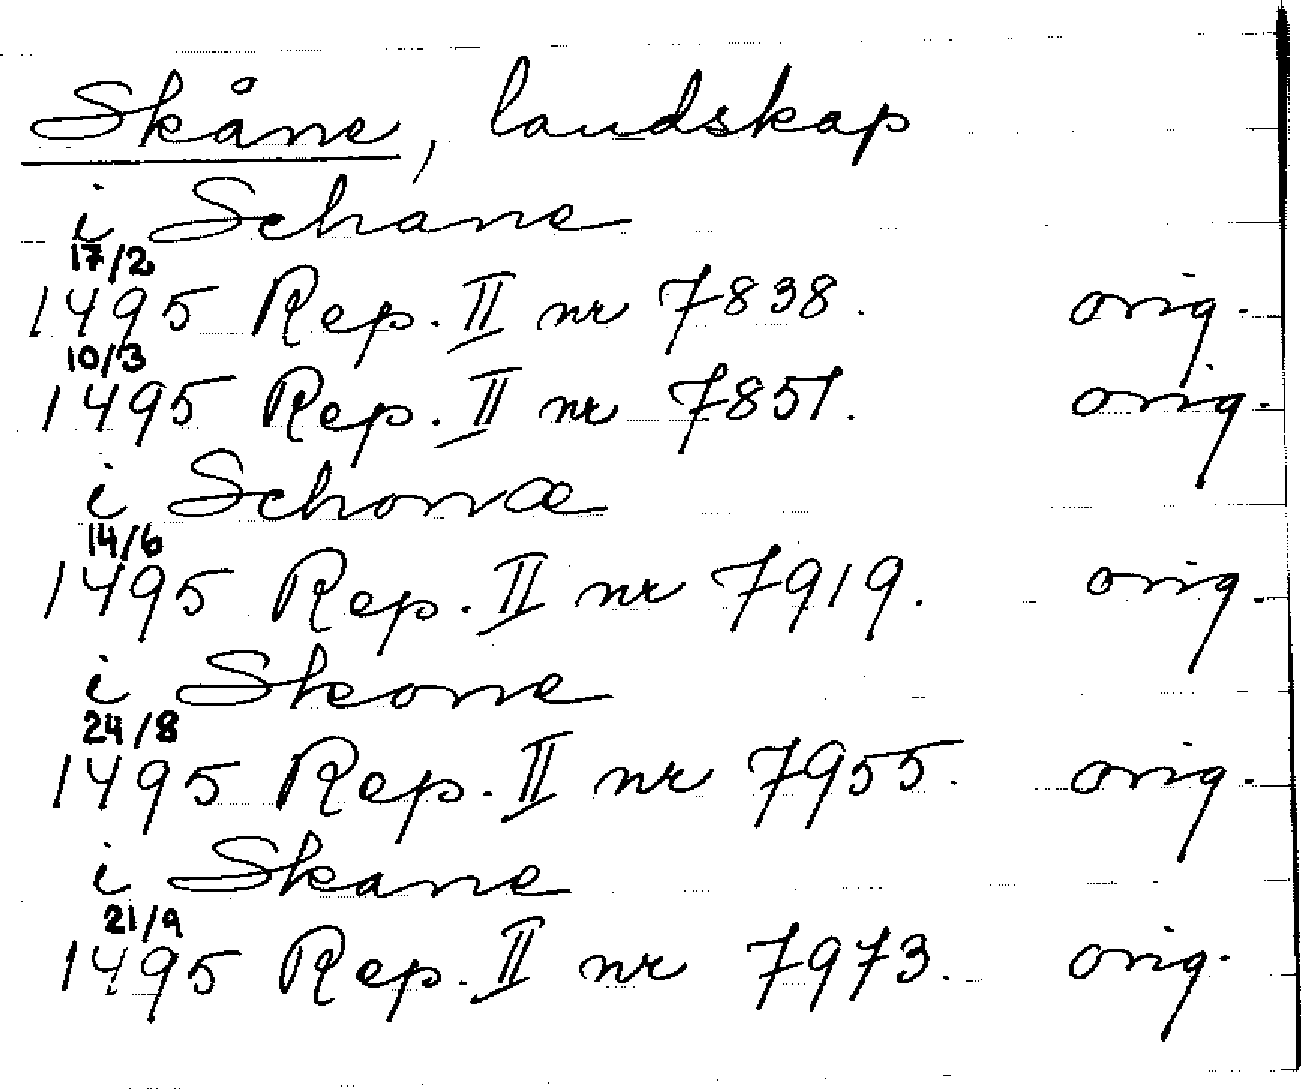 Skåne, landskap
i Schane
17/2
1495 Rep. II nr 7838. orig.
10/3
1495 Rep. II nr 7851. orig.
i Schonæ
14/6
1495 Rep. II nr 7919. orig.
i Skone
24/8
1495 Rep. II nr 7955. orig.
i Skane
21/9
1495 Rep. II nr 7973. orig.